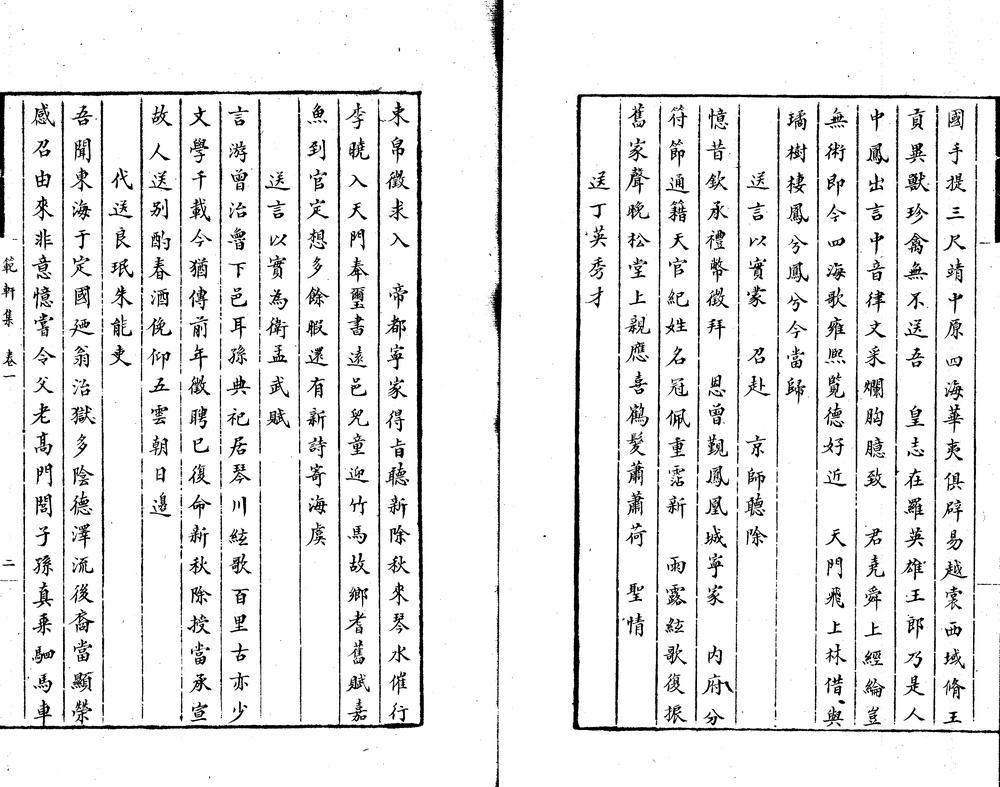 國手提三尺靖中原四海華夷俱辟易越裳西域脩王
貢異獸珍禽無不送吾　皇志在羅英雄王郎乃是人
中鳳出言中音律文采爛胸臆致　君堯舜上經綸豈
無術即今四海歌雍熙覽德好近　天門飛上林借與
璚樹棲鳳兮鳳兮今當歸
送言以實蒙　召赴　京師聽除
憶昔欽承禮幣徵拜　恩曾覲鳳凰城寧家　内府分
符節通籍天官紀姓名冠佩重霑新　雨露絃歌復振
舊家聲晚松堂上親應喜鶴髮蕭蕭荷　聖情
送丁英秀才
束帛徵求入　帝都寧家得旨聽新除秋來琴水催行
李曉入天門奉璽書遠邑兒童迎竹馬故鄉耆舊賦嘉
魚到官定想多餘暇還有新詩寄海虞
送言以實為衛孟武賦
言游曾治魯下邑耳孫典祀居琴川絃歌百里古亦少
文學千載今猶傳前年徵聘已復命新秋除授當承宣
故人送别酌春酒俛仰五雲朝日邊
代送良珉朱能吏
吾聞東海于定國廼翁治獄多陰德澤流後裔當顯榮
感召由來非意憶嘗令父老高門閭子孫真乘駟馬車
範軒集　卷一　二